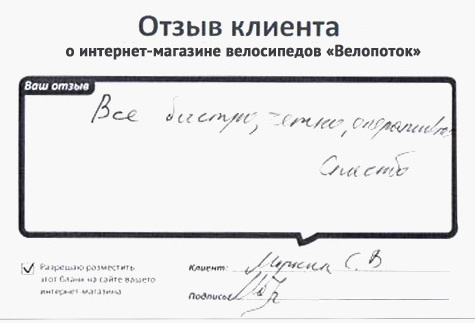 Отзыв клиента
о интернет-магазине велосипедов «Велопоток»
Ваш отзыв
Все быстро, четко, оперативно
Спасибо
Разрешаю разместить
этот бланк на сайте вашего
интернет-магазина
Клиент: С. В
Подпись: